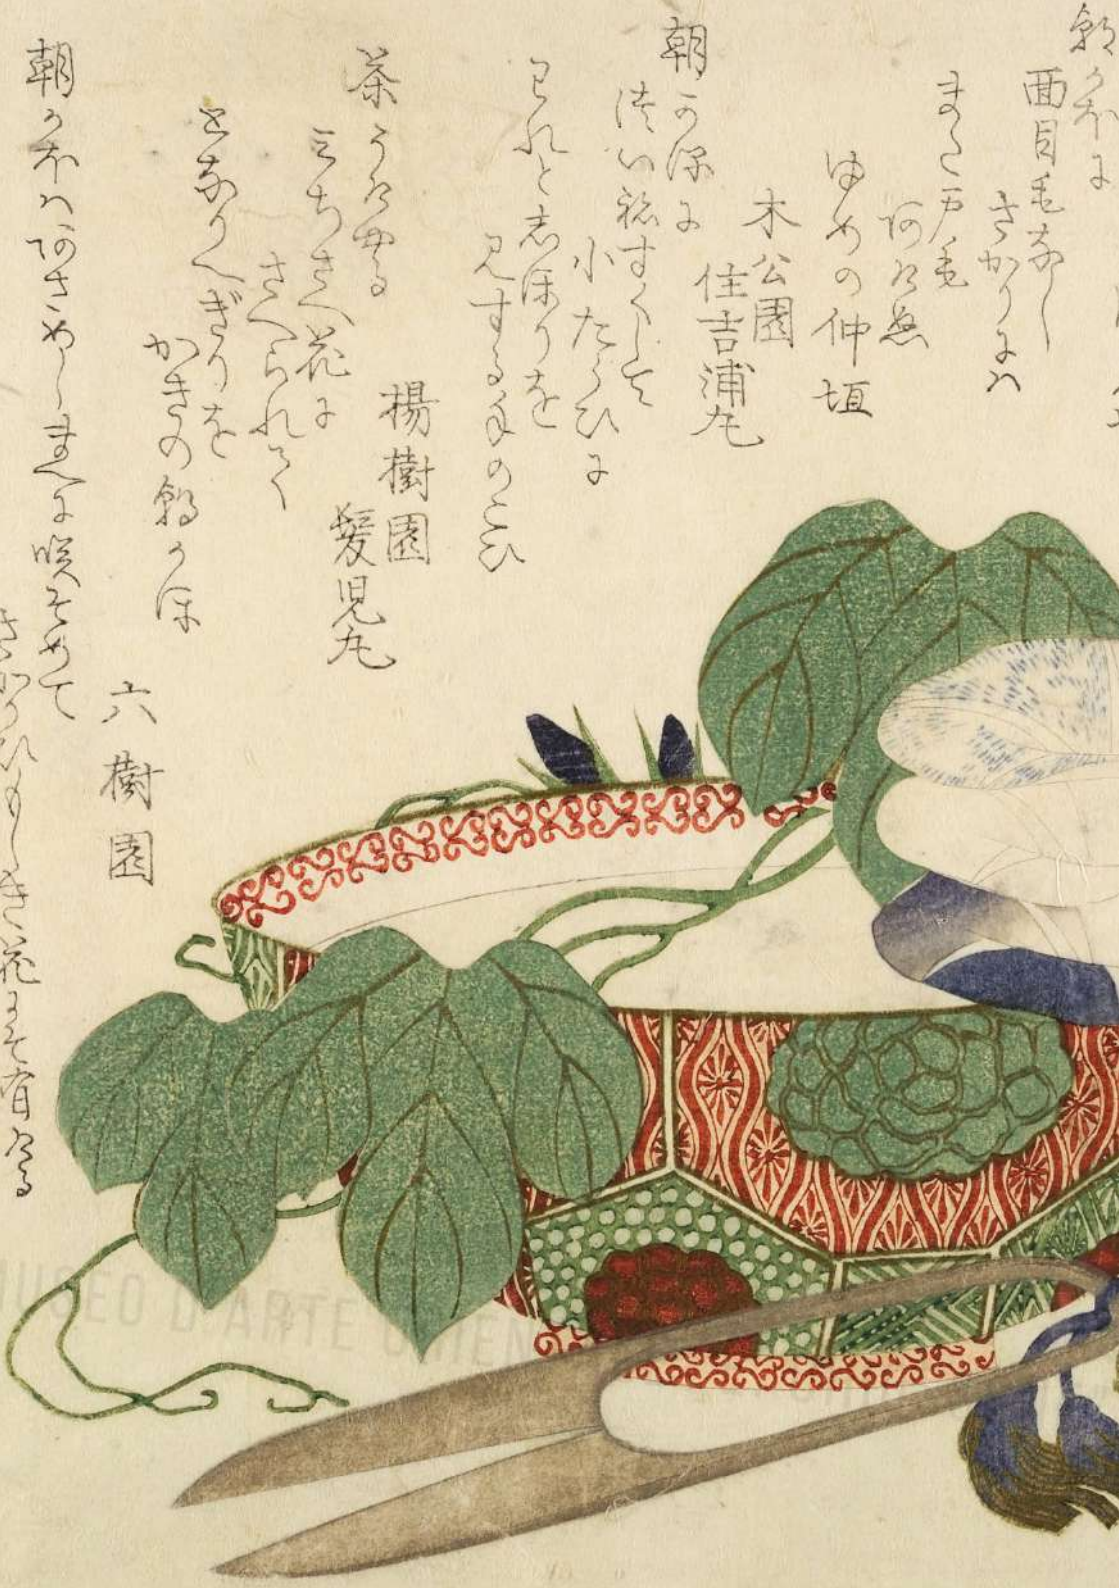 朝かほに
面目もなし
さかりには
また戸も
あけぬ
ゆめの仲垣
木公園
住吉浦丸
朝かほに
つい祢すくして
小たらひに
われと志ほりを
見する手のこひ
楊樹園
髪児丸
茶うけやる
みちさへ花に
さへられて
となりへぎりを
かきの朝かほ
六樹園
朝かほハあさめしまへに咲そめて
さかりひもしき花にそ有ける
MUSEO D'ARTE ORIEN